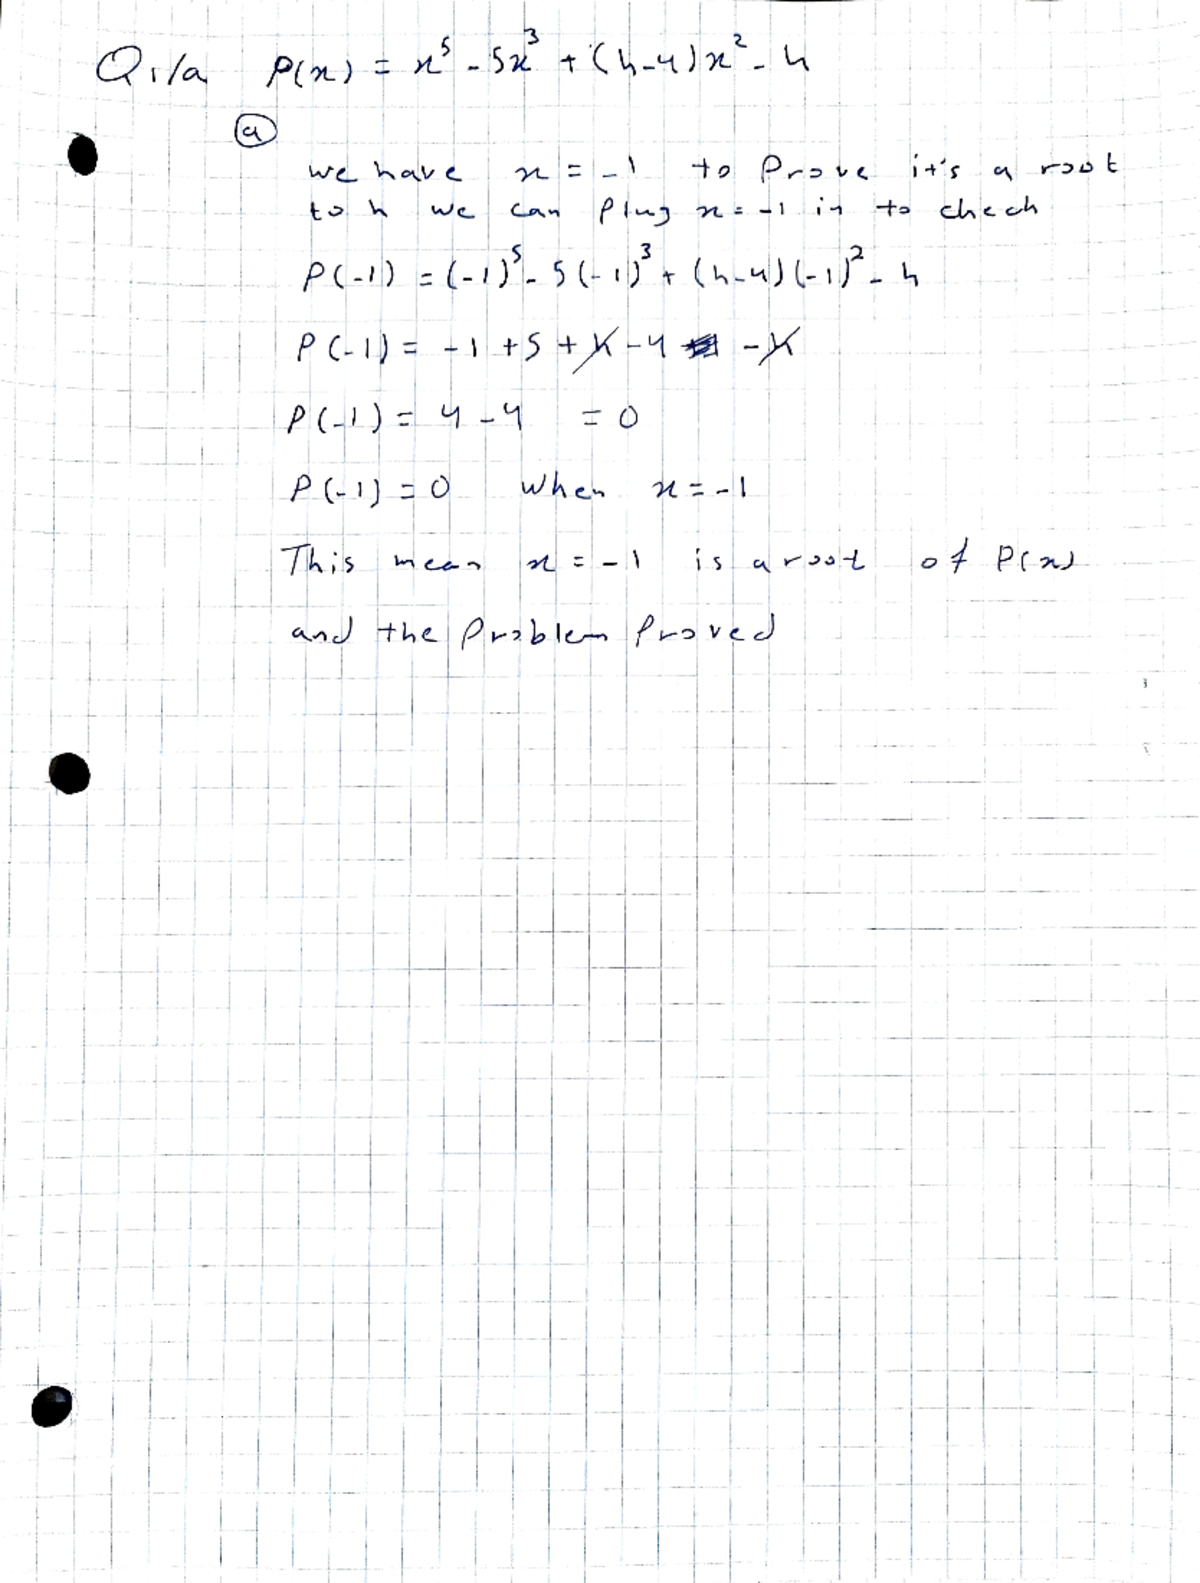 Q1/a P(x) = x⁵ - 5x³ + (k-4)x² - k
(a)
we have x = -1 to Prove it's a root
to k we can Plug x = -1 in to check
P(-1) = (-1)⁵ - 5(-1)³ + (k-4)(-1)² - k
P(-1) = -1 + 5 + k - 4 - k
P(-1) = 4 - 4 = 0
P(-1) = 0 when x = -1
This mean x = -1 is a root of P(x)
and the Problem Proved